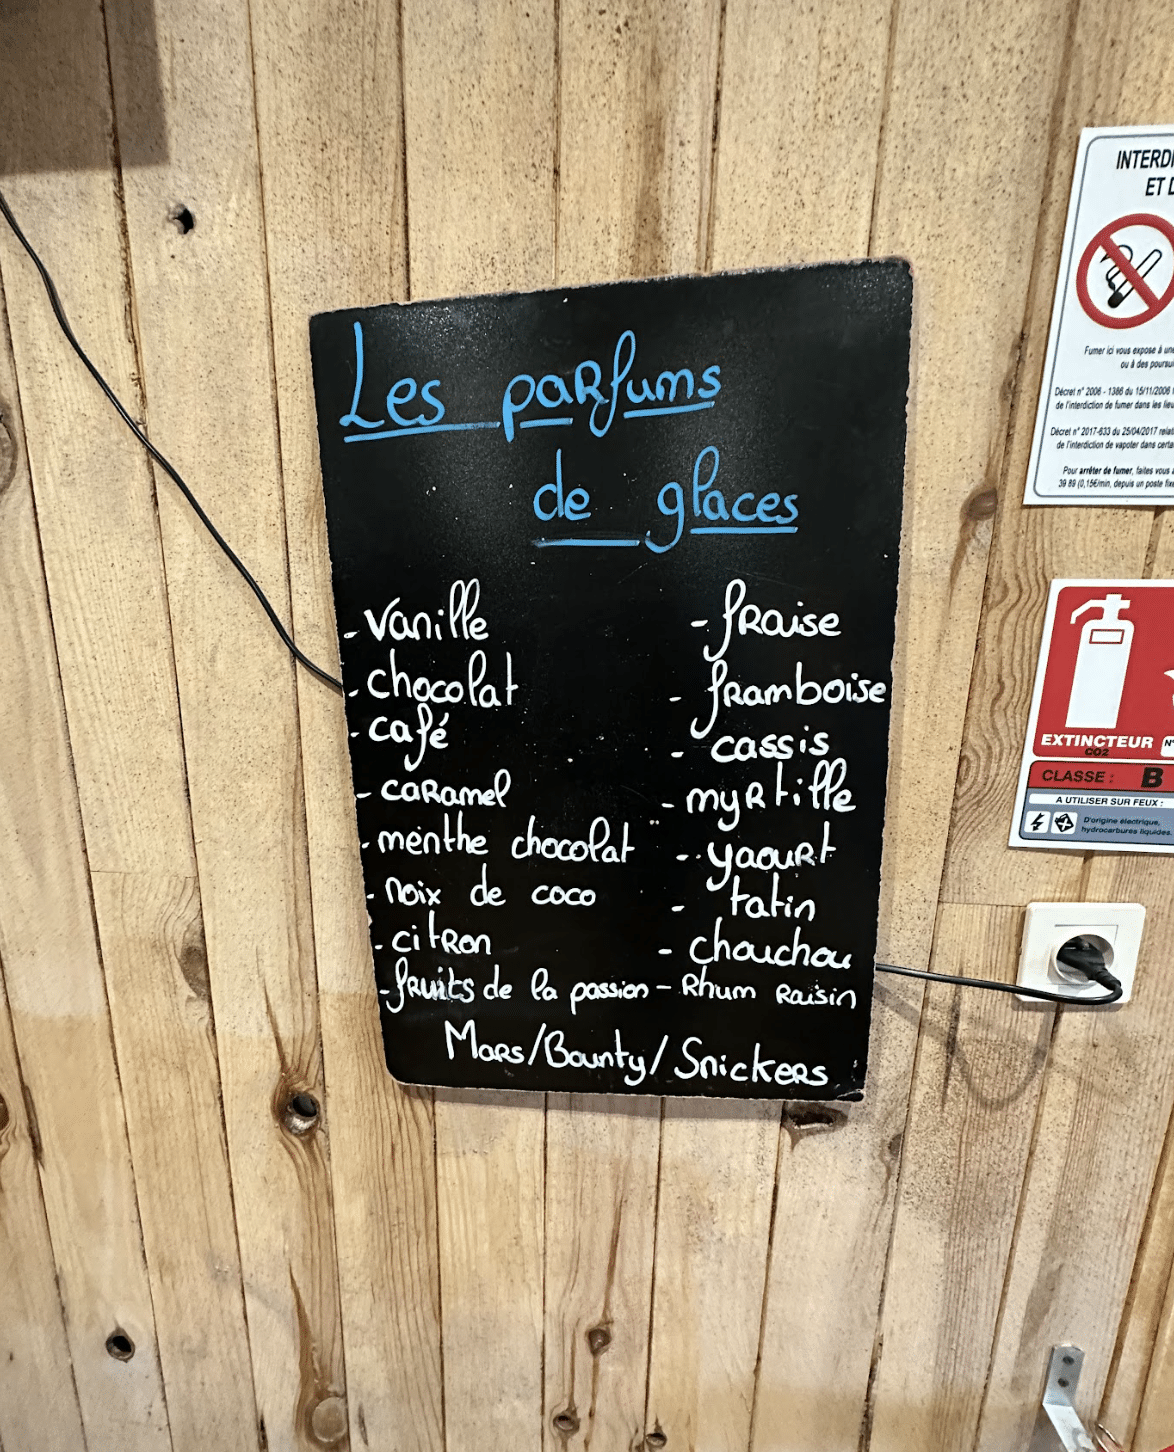 Les parfums
de glaces
- vanille
- chocolat
- café
- caramel
- menthe chocolat
- noix de coco
- citron
- fruits de la passion
- fraise
- framboise
- cassis
- myrtille
- yaourt
- tatin
- chouchou
- Rhum Raisin
Mars/Bounty/Snickers
INTERDI
ET D
Fumer ici vous expose à une
ou à des poursui
Décret n° 2006 - 1386 du 15/11/2006
de l'interdiction de fumer dans les lieu
Décret n° 2017-633 du 25/04/2017 relat
de l'interdiction de vapoter dans certa
Pour arrêter de fumer, faites vous a
39 89 (0,15€/min, depuis un poste fixe
EXTINCTEUR N°
CO2
CLASSE : B
A UTILISER SUR FEUX :
D'origine électrique,
hydrocarbures liquides.